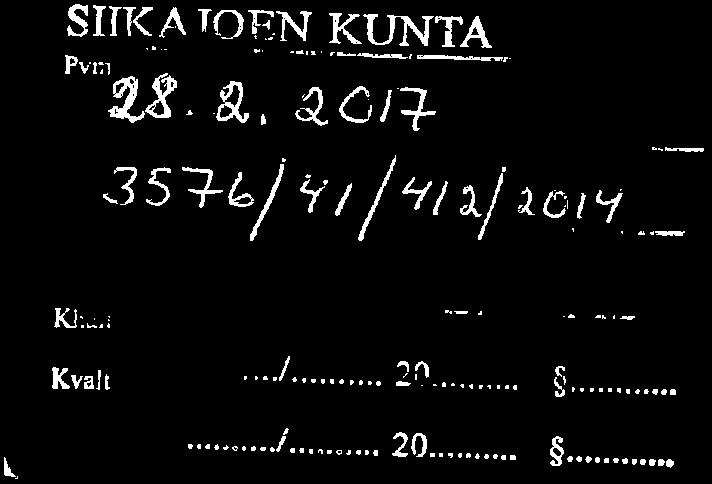 SIIKAJOEN KUNTA
Pvm
28.2.2017
3576/41/412/2014
Khall
Kvalt ..../.......... 20.......... §............
........../.......... 20.......... §............